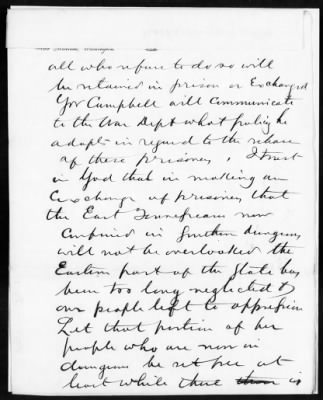 all who refuse to do so will
be retained in prison or Exchanged
Gov Campbell will Communicate
to the War Dept what policy he
adopts in regard to the release
of these prisoners, I trust
in God that in making an
Exchange of prisoners that
the East Tennesseans now
Confined in Southern dungeons
will not be overlooked the
Eastern part of the State has
been too long neglected &
our people left to oppression
Let that portion of her
people who are now in
dungeons be set free at
least while there is